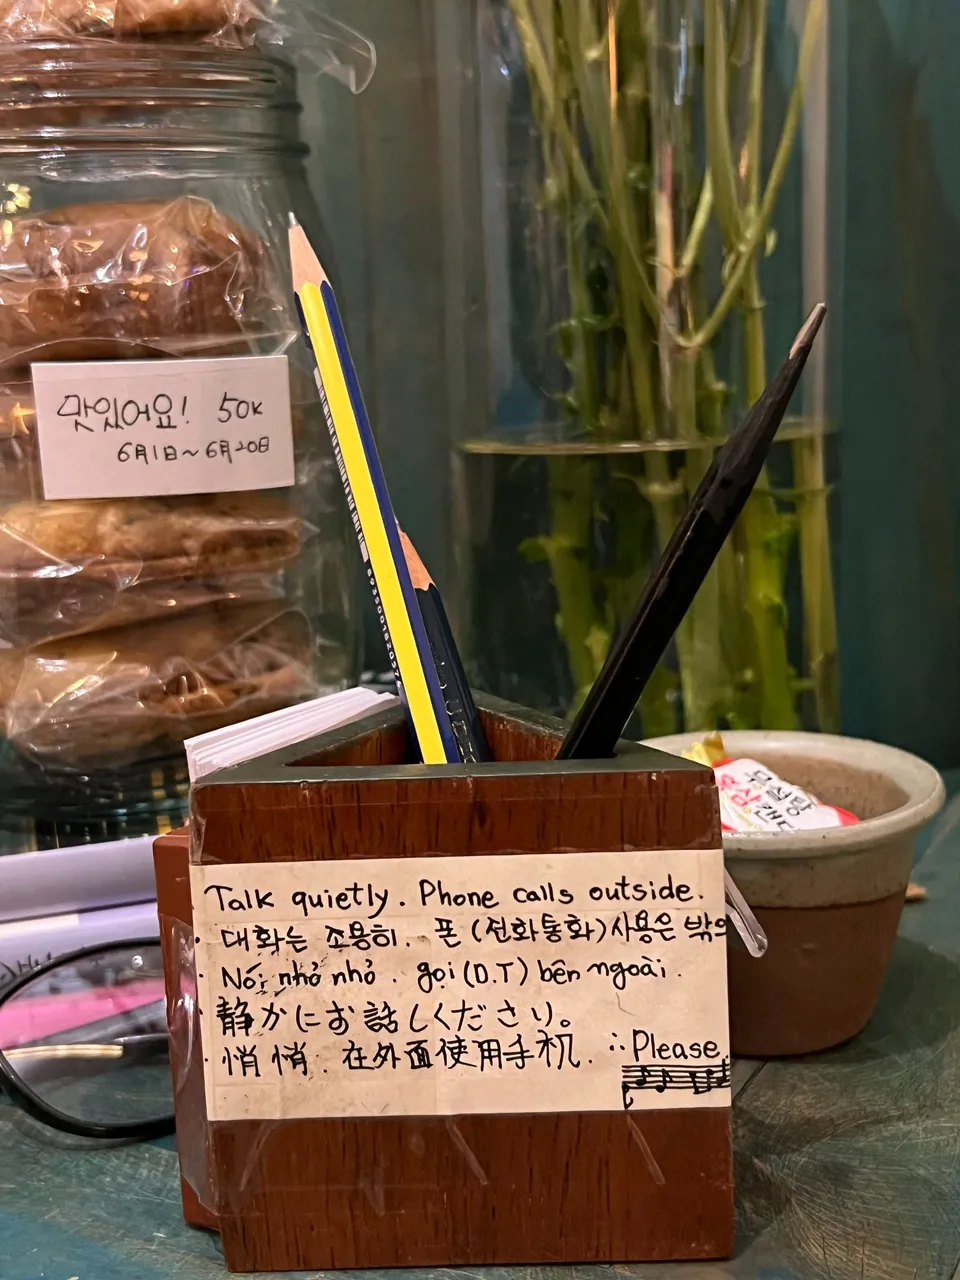 맛있어요! 50K
6月1日~6月20日
무설탕
홍삼캔디
Talk quietly. Phone calls outside.
· 대화는 조용히. 폰 (전화통화) 사용은 밖의
· Nói nhỏ nhỏ. gọi (D.T) bên ngoài.
· 静かにお話しください。
· 悄悄. 在外面使用手机. ∴ Please